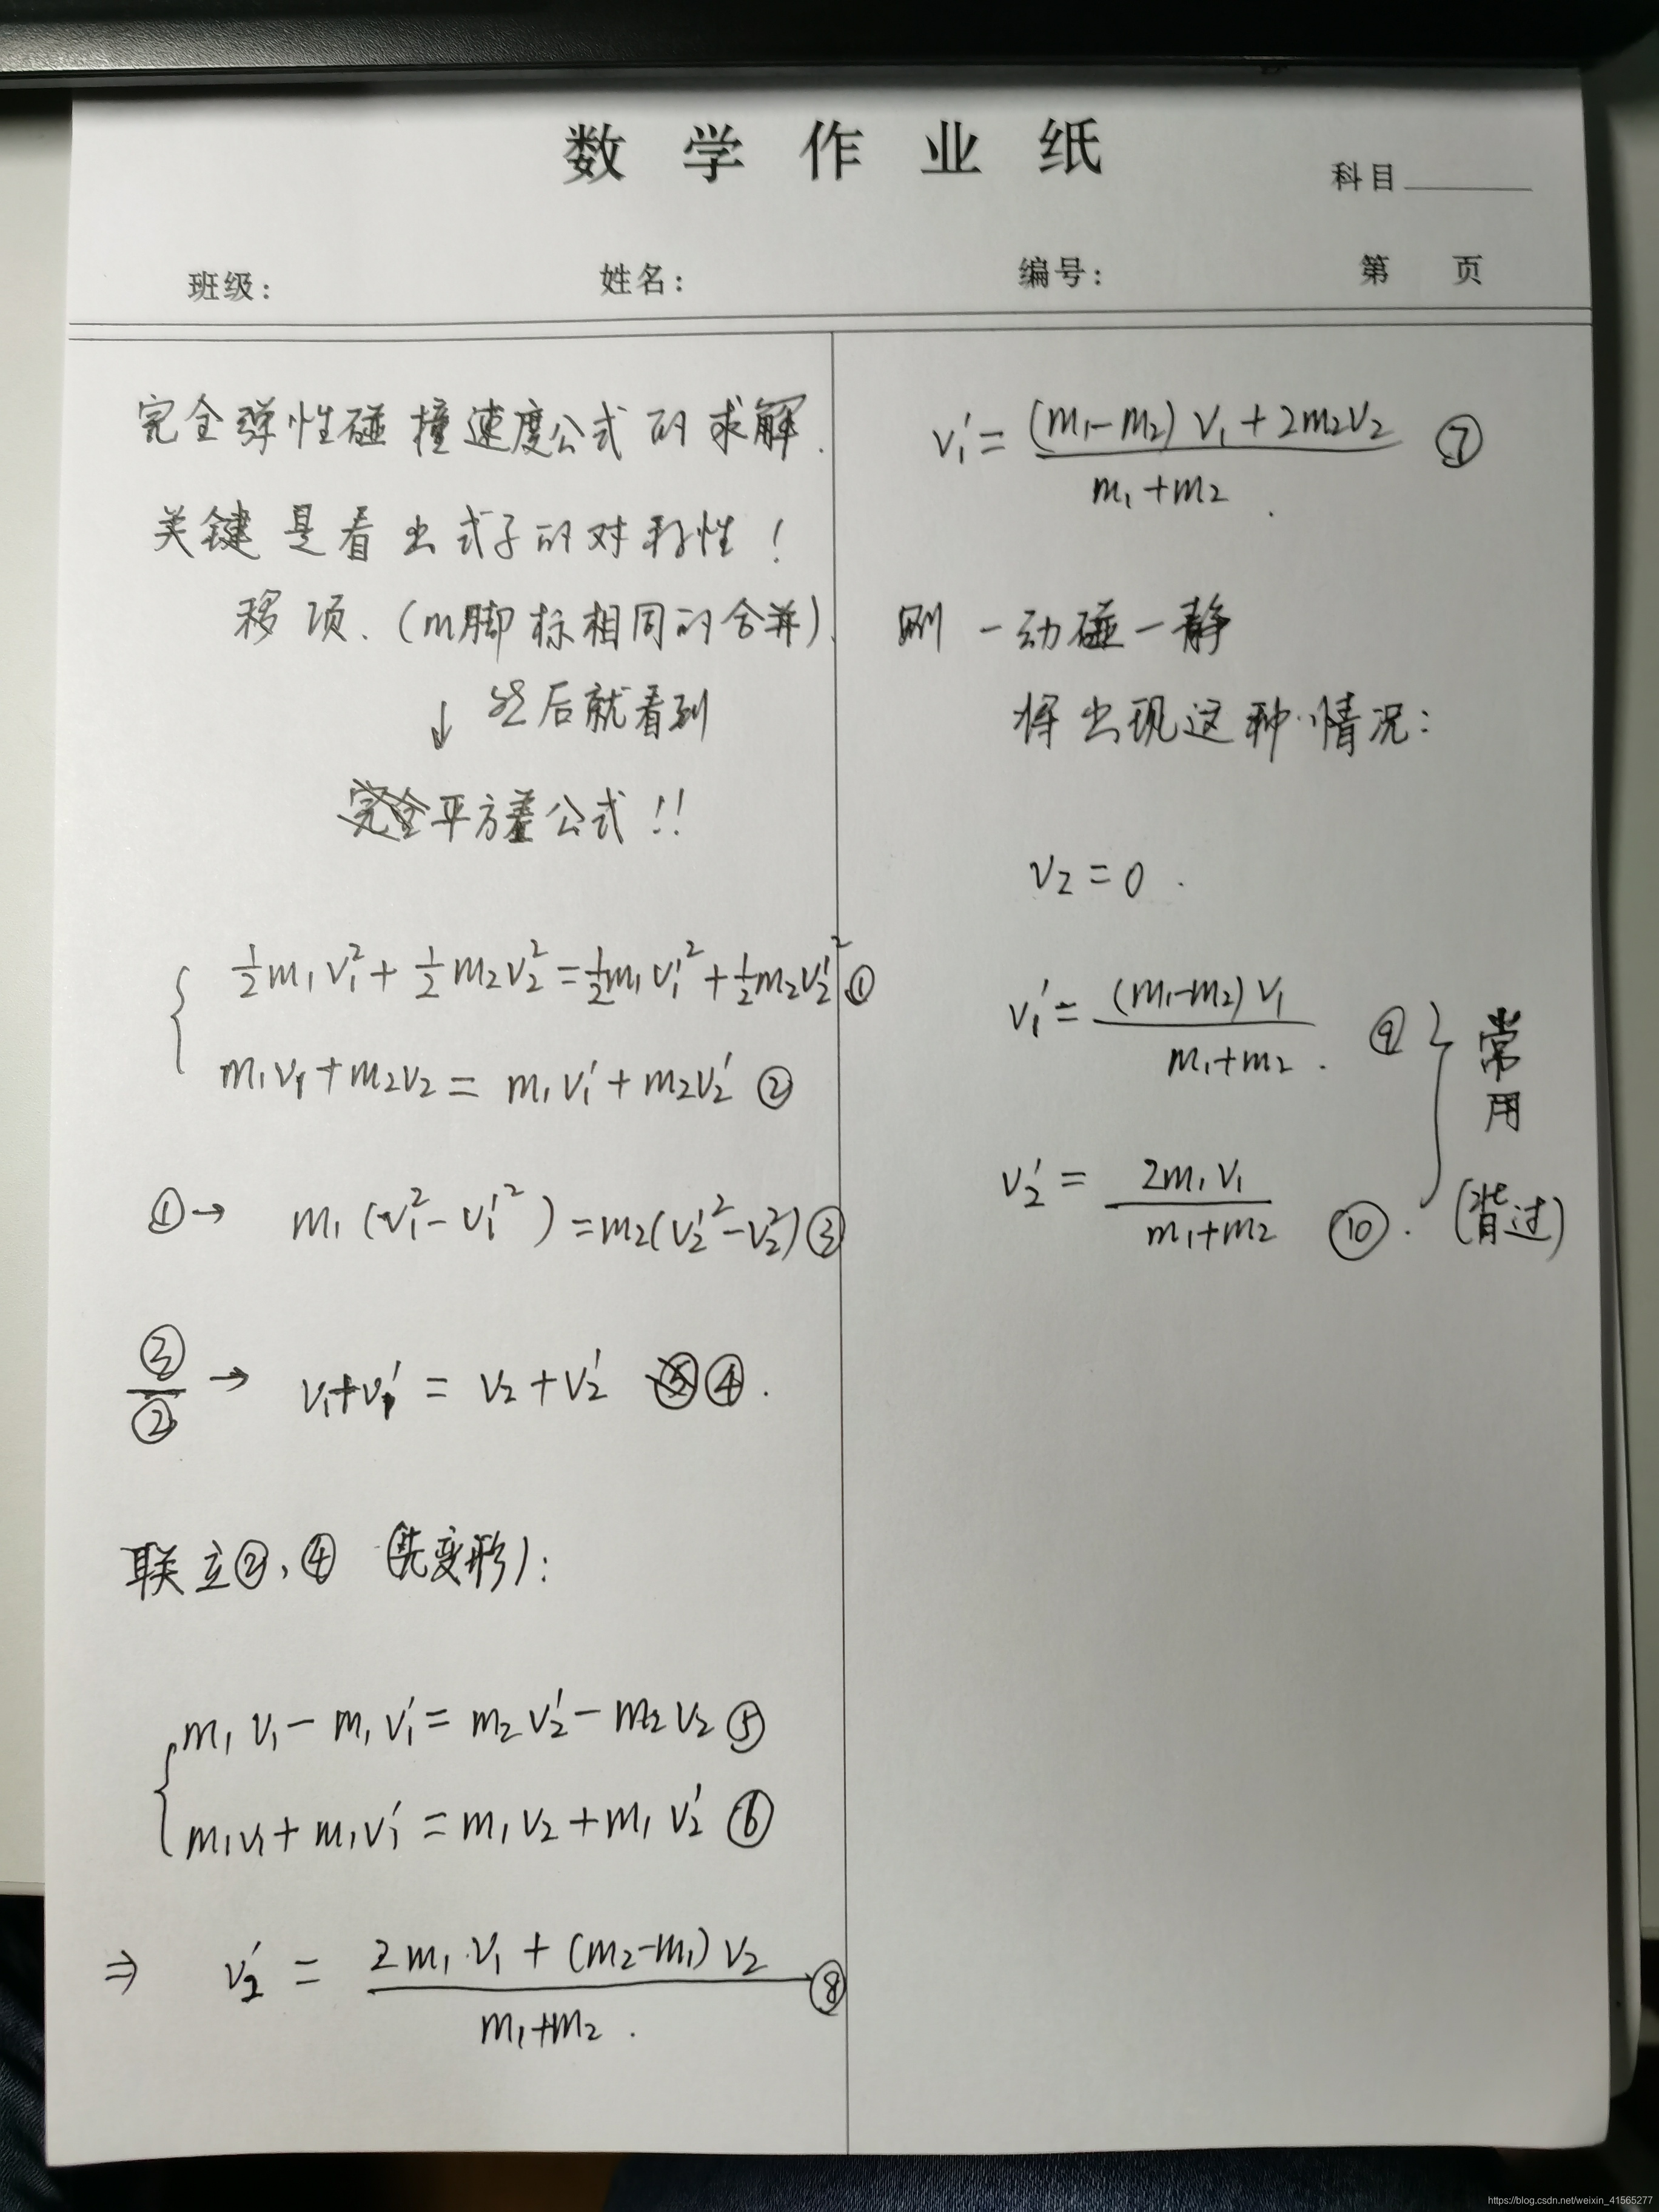 数学作业纸
科目
班级: 姓名: 编号: 第 页
完全弹性碰撞速度公式的求解.
关键是看出式子的对称性!
移项.(m脚标相同的合并).
↓ 然后就看到
平方差公式!!
{ ½m₁v₁² + ½m₂v₂² = ½m₁v₁'² + ½m₂v₂'² ①
m₁v₁ + m₂v₂ = m₁v₁' + m₂v₂' ②
①→ m₁(v₁² - v₁'²) = m₂(v₂'² - v₂²) ③
③/② → v₁ + v₁' = v₂ + v₂' ④.
联立②、④ (先变形):
{ m₁v₁ - m₁v₁' = m₂v₂' - m₂v₂ ⑤
m₁v₁ + m₁v₁' = m₁v₂ + m₁v₂' ⑥
⇒ v₂' = (2m₁·v₁ + (m₂-m₁)v₂) / (m₁+m₂). ⑧
v₁' = ((m₁-m₂)v₁ + 2m₂v₂) / (m₁+m₂). ⑦
一动碰一静
将出现这种情况:
v₂ = 0.
v₁' = (m₁-m₂)v₁ / (m₁+m₂). ⑨
v₂' = 2m₁v₁ / (m₁+m₂) ⑩.
} 常用
(背过)
https://blog.csdn.net/weixin_41565277